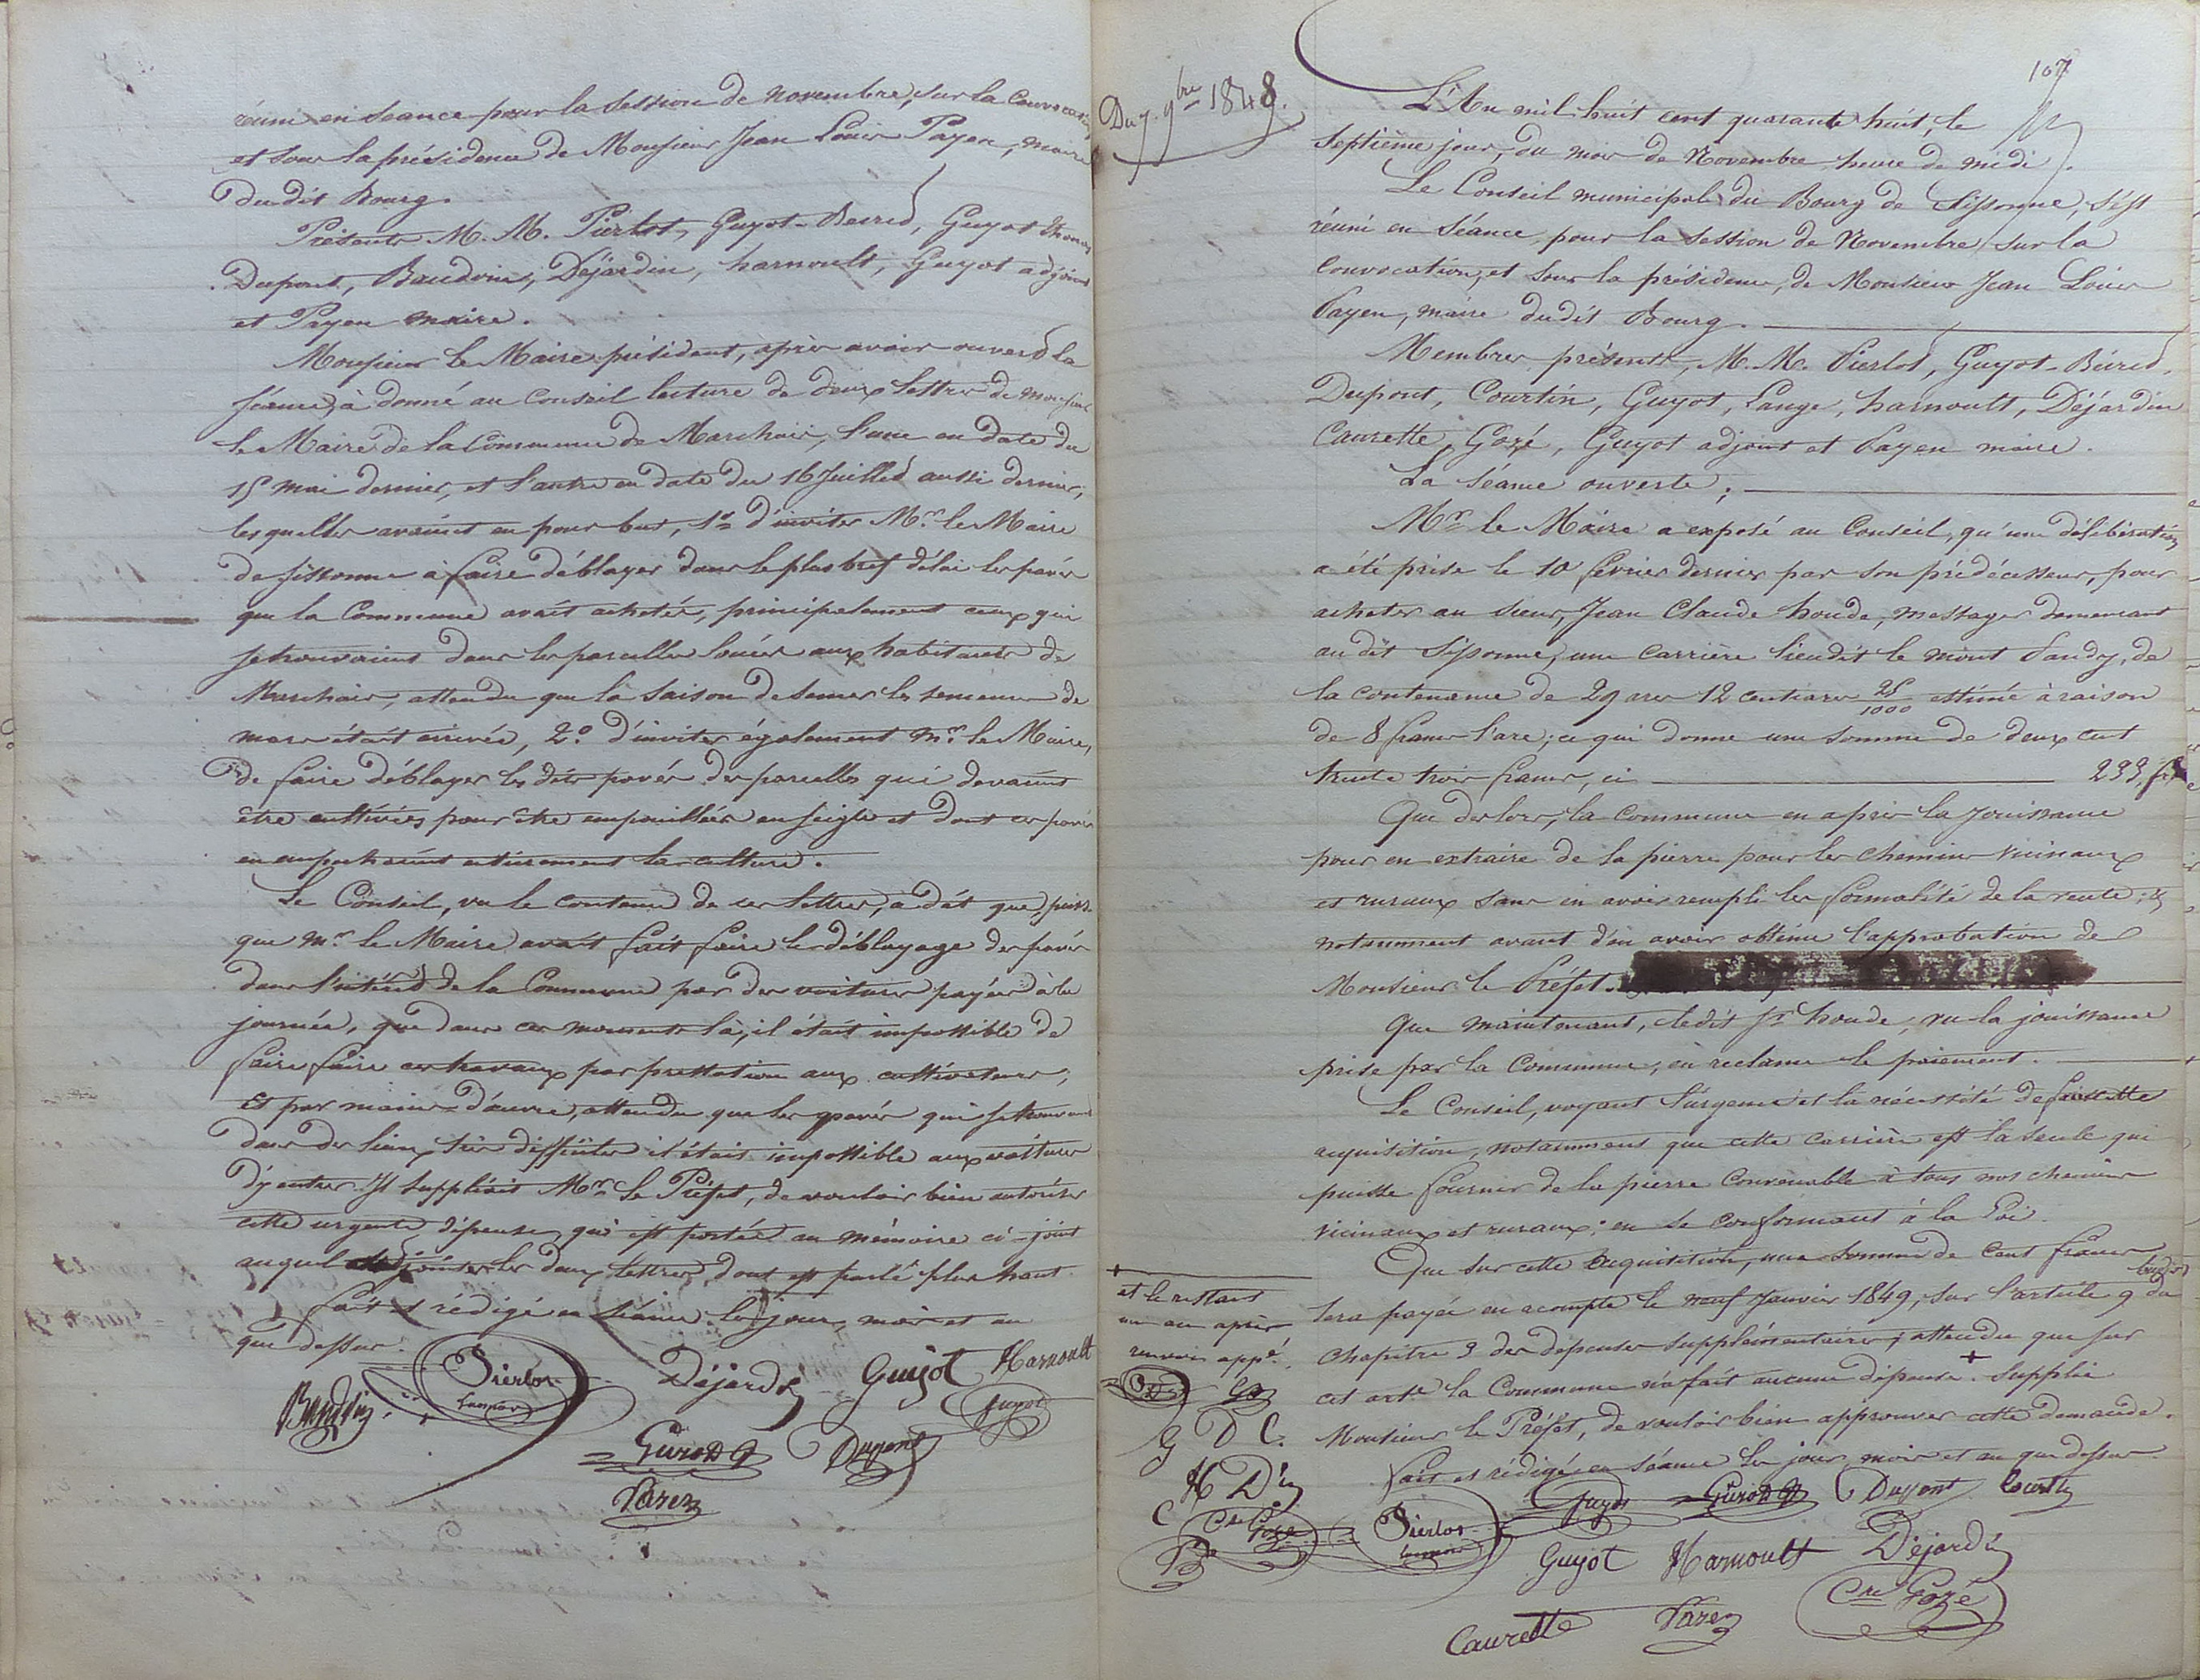 réuni en séance pour la session de novembre, sur la convocation
et sous la présidence de Monsieur Jean Louis Payen, maire
dudit Bourg.
Présents M. M. Pierlot, Guyot-Beired, Guyot Thomas
Dupont, Baudoins, Déjardin, harnoult, Guyot adjoint
et Payen maire.
Monsieur le Maire président, après avoir ouvert la
séance, à donné au Conseil lecture de deux lettres de monsieur
le Maire de la Commune de Marchais, l'une en date du
15 mai dernier, et l'autre en date du 16 Juillet aussi dernier,
lesquelles avaient eu pour but, 1º d'inviter Mr. le Maire
de Sissonne à faire déblayer dans le plus bref délai les pavés
que la Commune avait achetés, principalement ceux qui
se trouvaient dans les parcelles louées aux habitants de
Marchais, attendu que la saison de semer les semences de
mars était arrivée, 2º. d'inviter également Mr. le Maire,
de faire déblayer les dits pavés des parcelles qui devaient
être cultivées pour être empouillées en seigle et dont ces pavés
en empechaient entièrement la culture.
Le Conseil, vu le contenu de ces lettres, a dit que, puis-
que Mr. le Maire avait fait faire le déblayage des pavés
dans l'intérêt de la Commune par des voitures payées à la
journée, que dans ces moments là, il était impossible de
faire faire ces travaux par prestation aux cultivateurs,
Et par mains d'œuvre, attendu que les pavés qui se trouvaient
dans des lieux très difficiles il était impossible aux voitures
d'y entrer. Il suppliait Mr. le Préfet, de vouloir bien autoriser
cette urgente dépense, qui est portée au mémoire ci-joint
auquel joints les deux lettres, dont est parlé plus haut
fait et rédigé en séance les jour, mois et an
que dessus.
Pierlot Déjardin Guyot Harnoult
Guyot
Dupont
Payen
107
Du 7. 9bre 1848.
L'An mil huit cent quarante huit, le
septième jour, du mois de Novembre heure de midi.
Le Conseil municipal du Bourg de Sissonne, s'est
réuni en séance, pour la session de Novembre, sur la
convocation, et sous la présidence, de Monsieur Jean Louis
Payen, maire dudit Bourg.
Membres présents, M. M. Pierlot, Guyot-Béired,
Dupont, Courtin, Guyot, Lange, harnoult, Déjardin
Caurette, Gozé, Guyot adjoint et Payen maire.
La séance ouverte;
Mr. le Maire a exposé au Conseil, qu'une délibération
a été prise le 10 février dernier par son prédécesseur, pour
acheter au sieur, Jean Claude houde, messager demeurant
audit Sissonne, une carrière lieudit le mont Pandy, de
la contenance de 29 ares 12 centiares 25/1000 estimé à raison
de 8 francs l'are; ce qui donne une somme de deux cent
trente trois francs, ci 233, fr
Que des lors, la commune en a pris la jouissance
pour en extraire de la pierre pour les chemins vicinaux
et ruraux sans en avoir rempli les formalité de la vente; et
notamment avant d'en avoir obtenu l'approbation de
Monsieur le Préfet.
Que maintenant, ledit Sr. houde, vu la jouissance
prise par la Commune, en reclame le paiement.
Le Conseil, voyant l'urgence et la nécessité de faire cette
acquisition, notamment que cette carrière est la seule qui
puisse fournir de la pierre convenable à tous nos chemins
vicinaux et ruraux; en se conformant à la Loi
Que sur cette acquisition, une somme de cent francs
sera payée en acompte le neuf Janvier 1849, sur l'article 9 du budget
chapitre 3 des dépenses supplémentaires; attendu que sur
cet arte. la Commune n'a fait aucune dépense. + Supplie
Monsieur le Préfet, de vouloir bien approuver cette demande.
fait et rédigé en séance les jour, mois et an que dessus.
+
et le restant
un an après
renvoi appé.
G D C.
H Din
C Cre Gozé
Pierlot Guyot Dupont Courtin
Guyot Harnoult Déjardin
Caurette Payen Cre Gozé